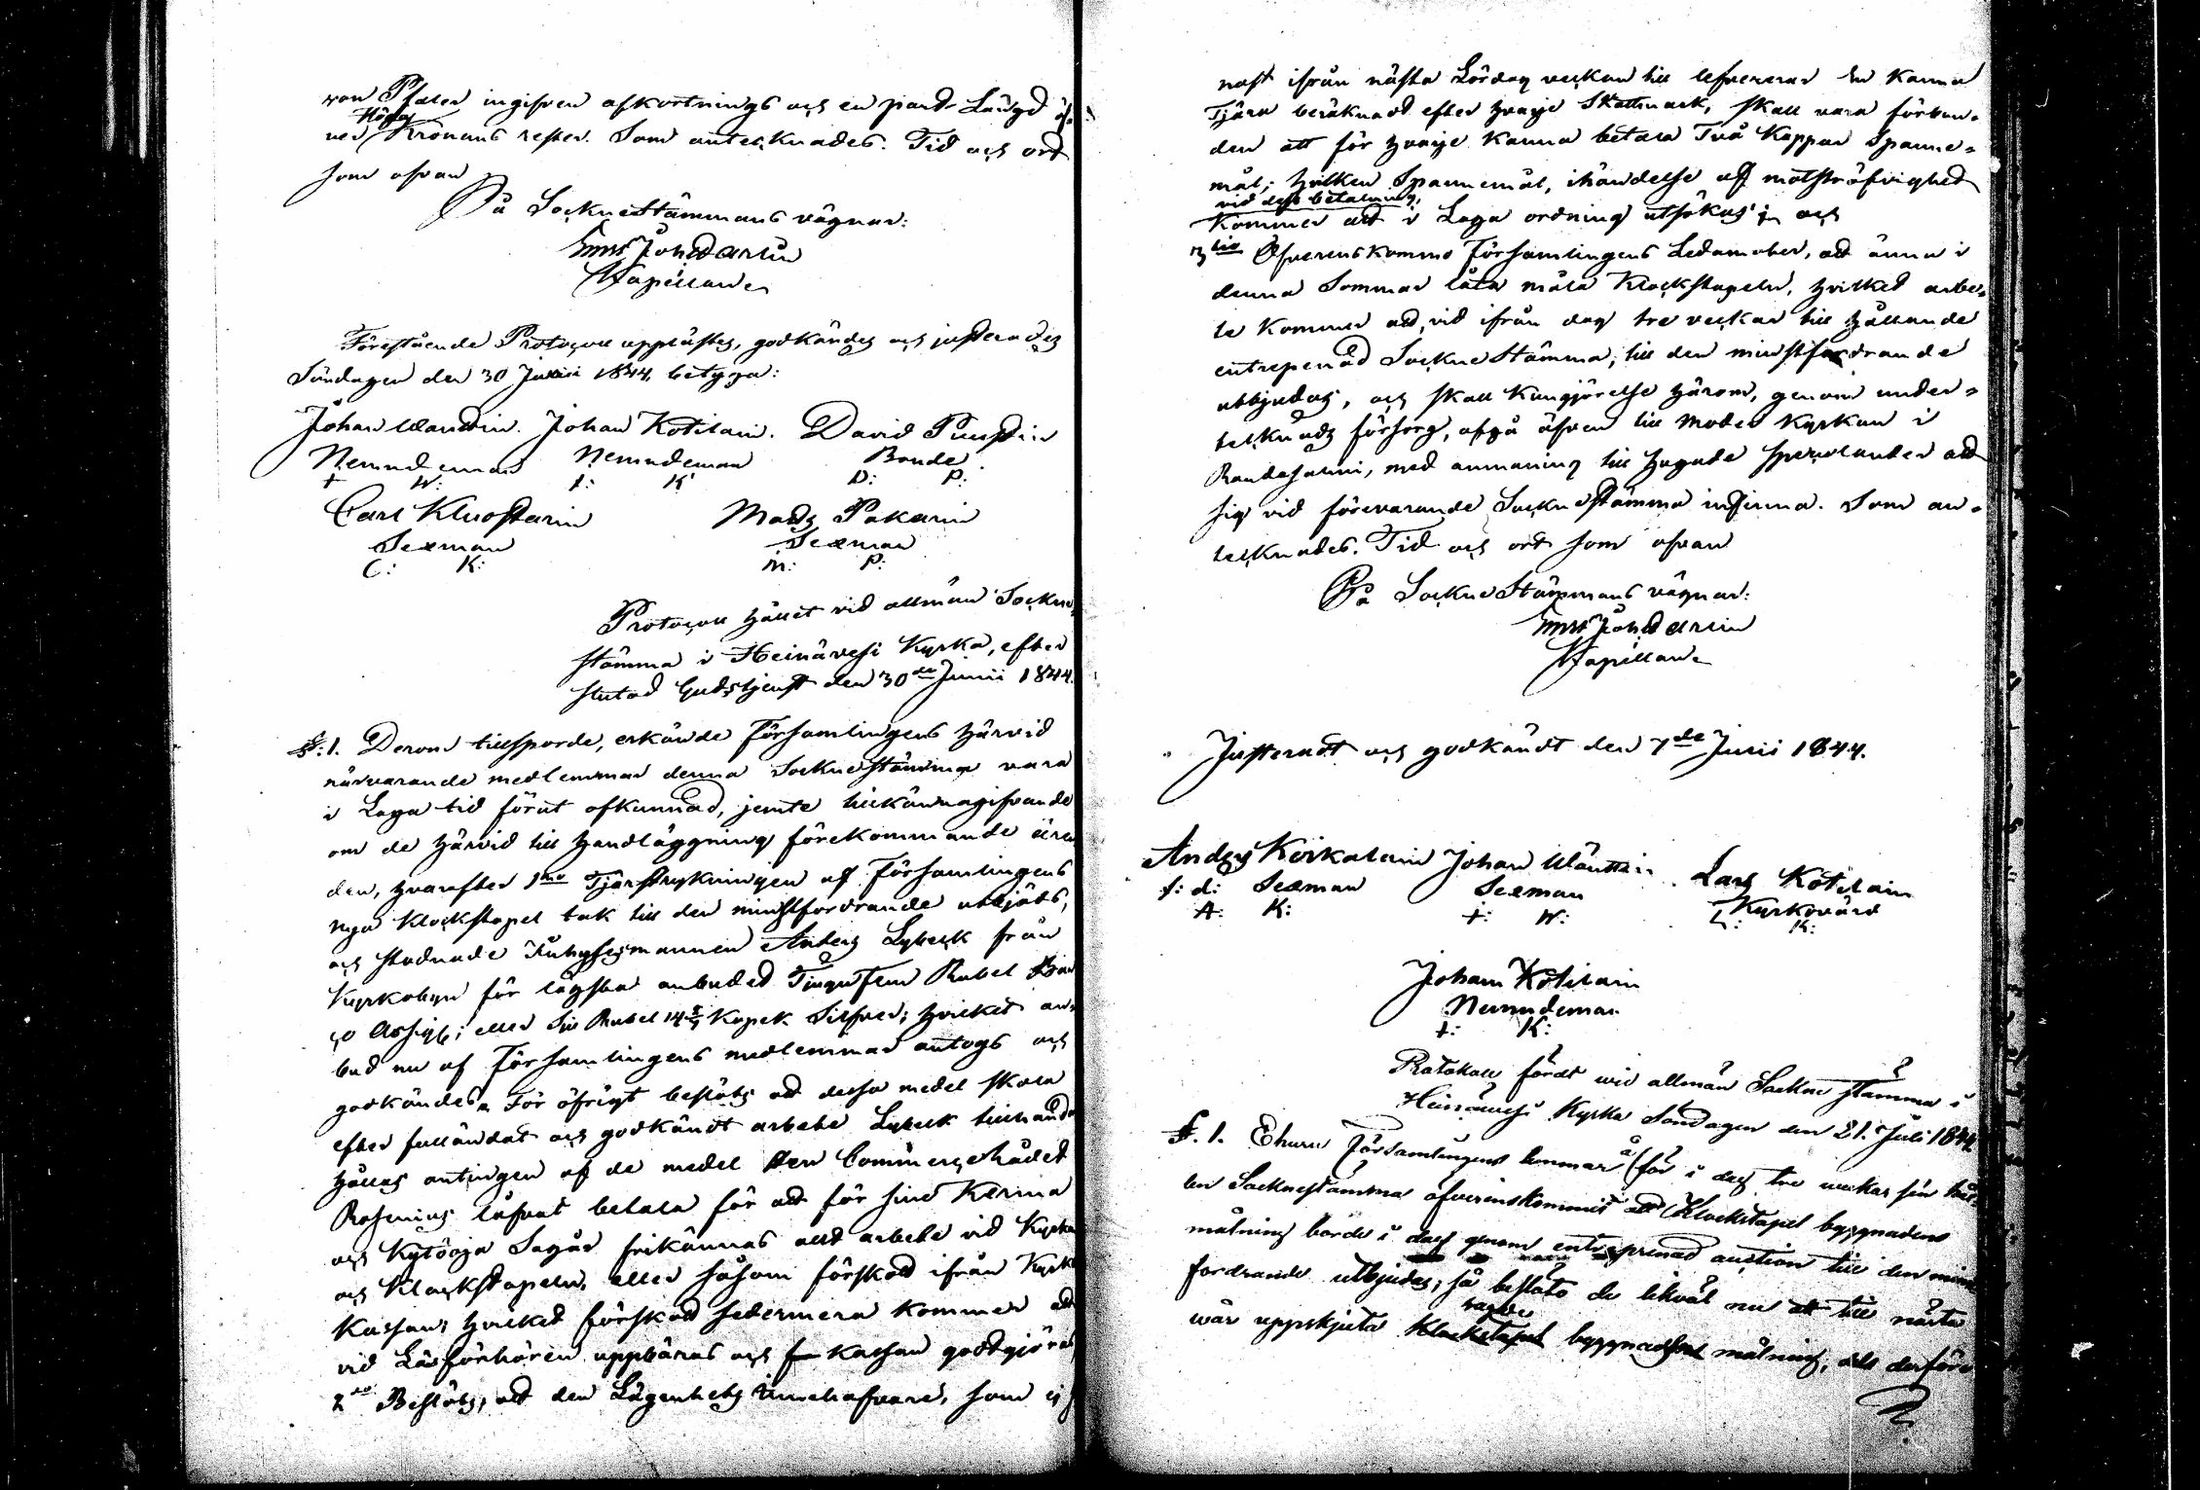 von Pfaler ingifven afkortnings och en part Längd öf-
ver Höga Kronans rester. Som antecknades. Tid och ort
som ofvan
På SockneStämmans vägnar:
Kapellan
Förestående Protocoll upplästes, godkändes och justerades
Söndagen den 30 Junii 1844, betyga:
Johan Wänttin. Johan Kotilain. David Puustin
Nemndeman Nemndeman Bonde.
I: W: I: K: D: P:
Carl Kluostarin Mats Pakarin
Sexman Sexman
C: K: M: P:
Protocoll hållet vid allmän Sockne
stämma i Heinävesi Kyrka, efter
slutad Gudstjenst den 30de Junii 1844.
§. 1. Derom tillsporde, erkände Församlingens härvid
närvarande medlemmar denna Socknestämma vara
i Laga tid förut afkunnad, jemte tillkännagifvande
om de härvid till handläggning förekommande ären
den, hvarefter 1mo Tjärstrykningen af Församlingens
nya Klockstapel tak till den minstfordrande utbjöds,
och stadnade Inhysesmannen Anders Lybeck från
Kyrkobyn för lägsta anbudet Tjugufem Rubel
50 Assign; eller Sju Rubel 14 2/7 Kopek Silfver; hvilket an-
bud nu af Församlingens medlemmar antogs och
godkändes. För öfrigt beslöts att dessa medel skola
efter fulländat och godkändt arbete Lybeck tillhanda
hållas antingen af de medel Herr CommerceRådet
Rosenius lofvat betala för att för sine Kerma
och Kytöoja Sågar frikännas allt arbete vid Kyrka
och Klockstapeln, eller såsom förskott ifrån Kyrk
Kassan; hvilket förskott sedermera kommer att
vid Läsförhören uppbäras och Kassan godtgöres,
2do Beslöts, att den Lägenhets Innehafvare, som ej
nast ifrån nästa Lördag veckan till lefvererar En Kanna
Tjära beräknad efter hvarje Skattmark, skall vara förbun-
den att för hvarje Kanna betala Två Kappar Spanne-
mål; hvilken Spannemål, i händelse af motsträfvighet
vid dess betalning,
Kommer att i Laga ordning utsökas; och
3tio Öfverenskommo Församlingens Ledamöter, att ännu i
denna Sommar låta måla Klockstapeln, hvilket arbe-
te Kommer att, vid ifrån dag tre veckor till hållande
entreprenad SockneStämma, till den minstfordrande
utbjudas, och skall Kungörelse härom, genom under-
tecknads försorg, afgå äfven till Moder Kyrkan i
Randasalmi, med anmaning till hugade spekulanter att
sig vid förevarande SockneStämma infinna. Som an-
tecknades. Tid och ort som ofvan
På SockneStämmans vägnar:
Kapellan
Justeradt och godkändt den 7de Junii 1844.
Anders Kirkolain Johan Wänttin. Lars Kotilain
f: d: Sexman Sexman Kyrkovärd
A: K: I: W: L: K:
Johan Kotilain
Nemndeman
I: K:
Protokoll fördt wid allmän Sockne stämma i
Heinävesi Kyrka Söndagen den 21. Juli 1844.
§. 1. Ehuru Församlingens lemmar å för i dag tre weckor sen håll
len Socknestämma öfverenskommit att Klockstapel byggnadens
målning borde i dag genom entreprenad auction till den minst
fordrande utbjudas, så beslöto de likväl nu att till nästa
wår uppskjuta sagde byggnads målning, dels derföre